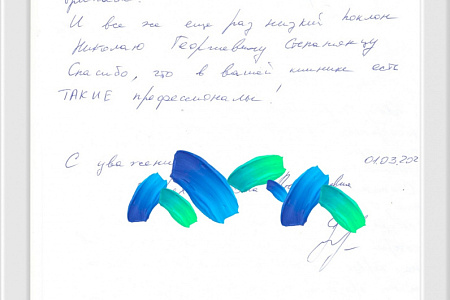 И все же еще раз низкий поклон
Николаю Георгиевичу
Спасибо, что в вашей клинике есть
ТАКИЕ профессионалы!
С уважени
01.03.202